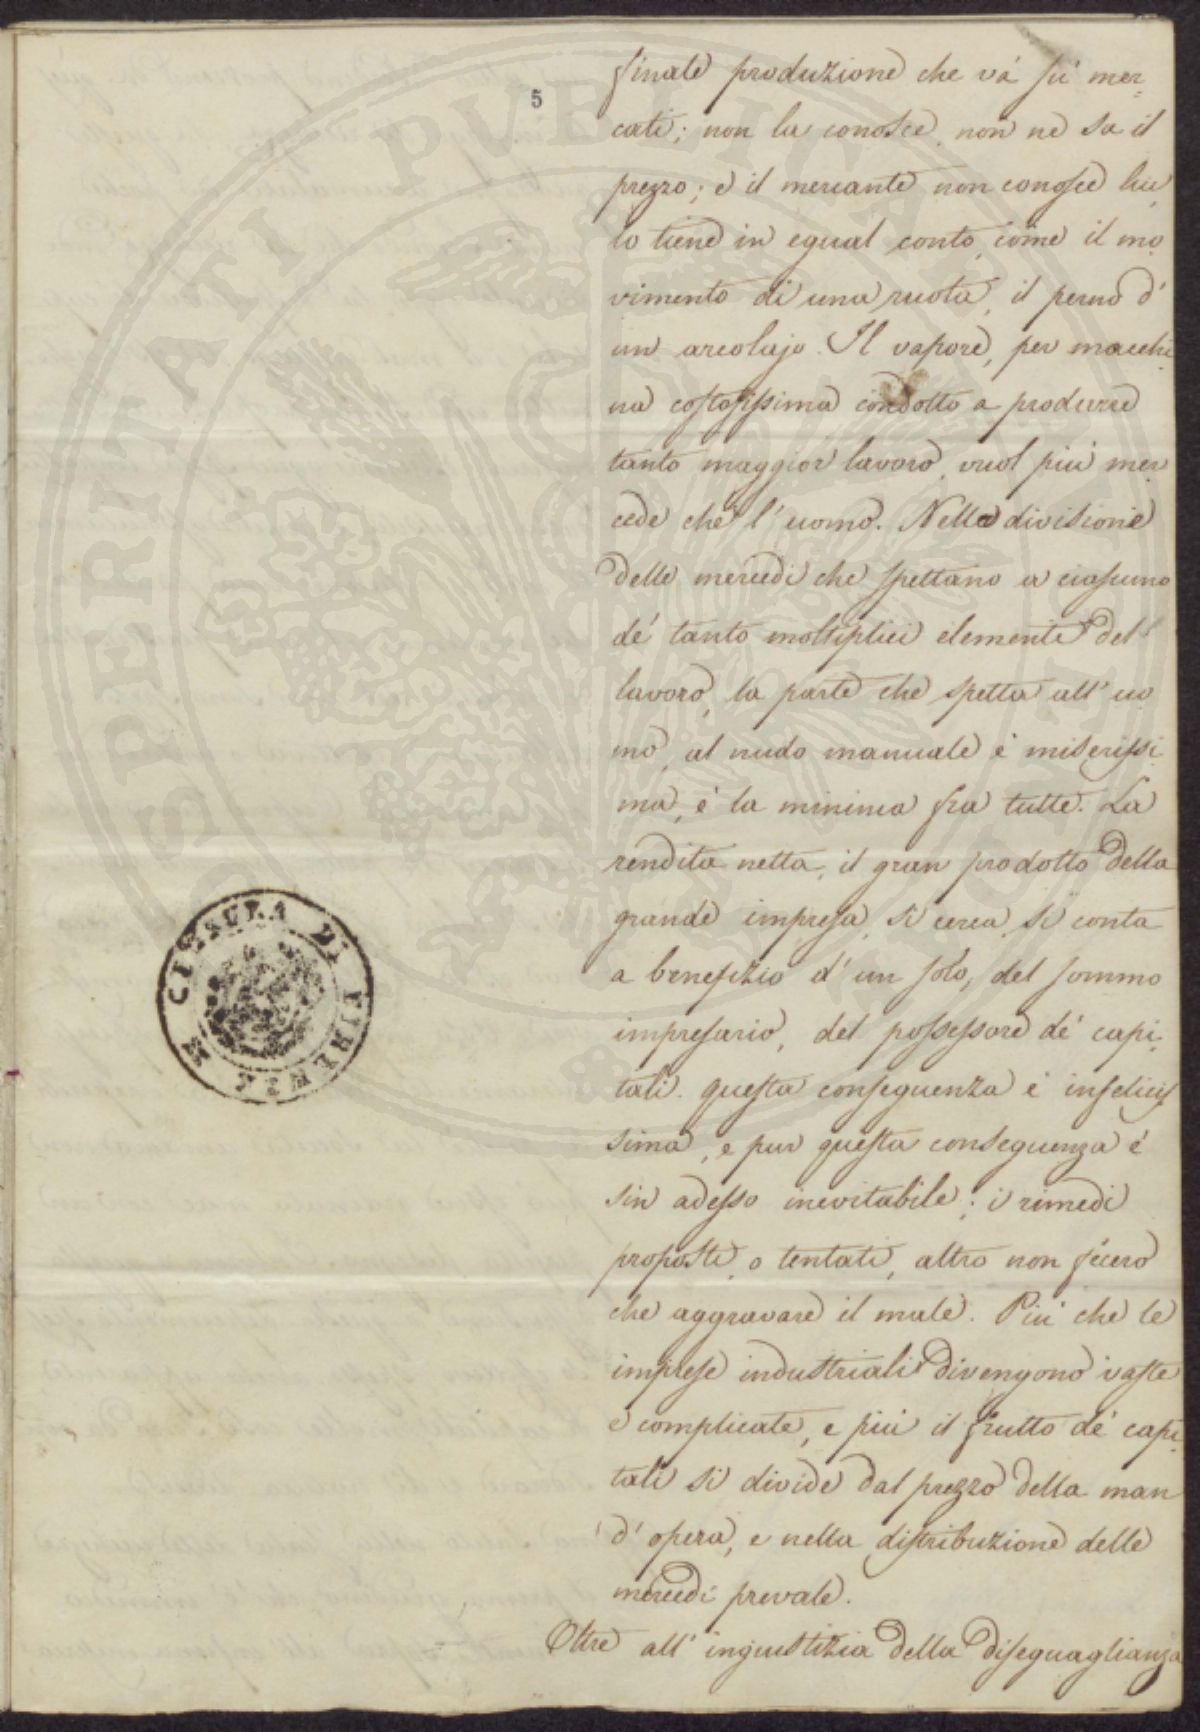 5
finale produzione che vá su' mer=
cati; non la conosce, non ne sa il
prezzo; e il mercante non conosce lui,
lo tiene in egual conto, come il mo
vimento di una ruota, il perno d'
un arcolajo. Il vapore, per macchi
na costosissima condotto a produrre
tanto maggior lavoro, vuol piú mer
cede che l'uomo. Nella divisione
delle mercedi che spettano a ciascuno
de' tanto moltiplici elementi del
lavoro, la parte che spetta all'uo
mo, al nudo manuale é miserissi
ma, é la minima fra tutte. La
rendita netta, il gran prodotto della
grande impresa, si cerca, si conta
a benefizio d'un solo, del sommo
impresario, del possessore de' capi
tali. questa conseguenza é infelicis
sima, e pur questa conseguenza é
sin adesso inevitabile; i rimedi
proposti, o tentati, altro non fecero
che aggravare il male. Piú che le
imprese industriali divengono vaste
e complicate, e piú il frutto de' capi
tali si divide dal prezzo della man
d'opera, e nella distribuzione delle
mercedi prevale.
Oltre all'ingiustizia della diseguaglianza
CENSURA DI FIRENZE
PROSPERITATI PUBLICAE AUGENDAE